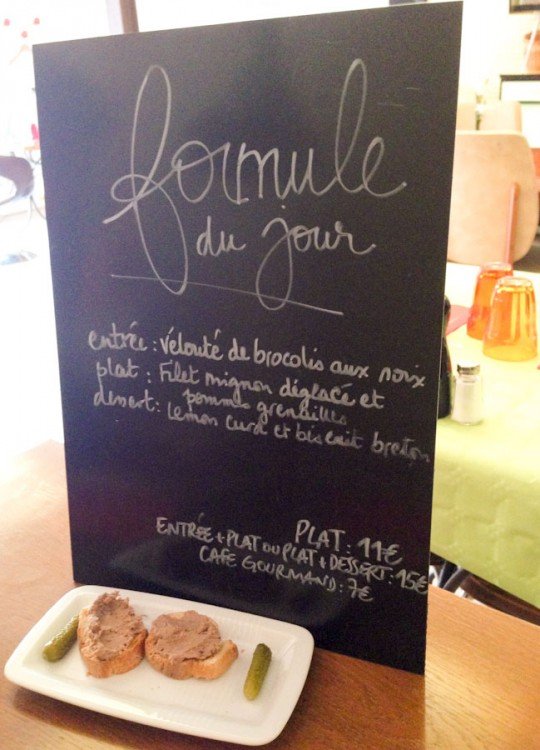 formule
du jour
entrée : velouté de brocolis aux noix
plat : Filet mignon déglacé et
pommes grenailles
dessert : lemon curd et biscuit breton
PLAT : 11€
ENTRÉE + PLAT OU PLAT + DESSERT : 15€
CAFE GOURMAND : 7€